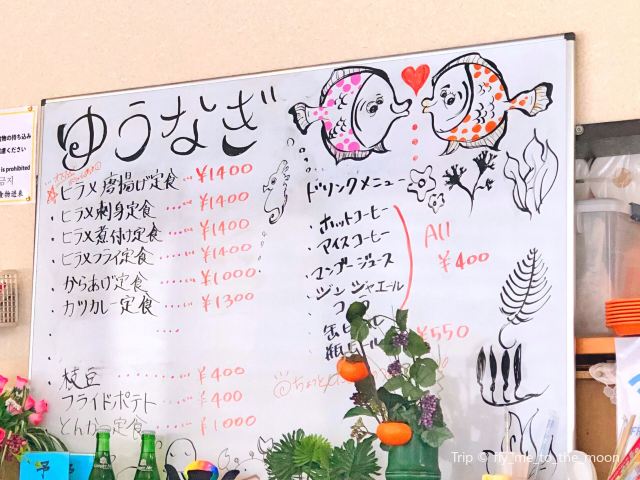 ゆうなぎ
ヒラメ唐揚げ定食 … ¥1400
・ヒラメ刺身定食 …… ¥1400
・ヒラメ煮付け定食 … ¥1400
・ヒラメフライ定食 …… ¥1400
・からあげ定食 …… ¥1000
・カツカレー定食 …… ¥1300
・枝豆 …… ¥400
・フライドポテト …… ¥400
とんかつ定食 …… ¥1000
ドリンクメニュー
・ホットコーヒー
・アイスコーヒー
・マンゴージュース
・ジンジャエール
All
¥400
¥550
is prohibited
금지
Trip © fly_me_to_the_moon